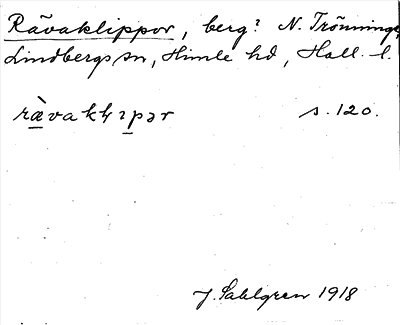 Rävaklippor, berg? N. Trönninge,
Lindbergs sn, Himle hd, Hall. l.
ræ̀vakḷɩpər s. 120.
J. Sahlgren 1918